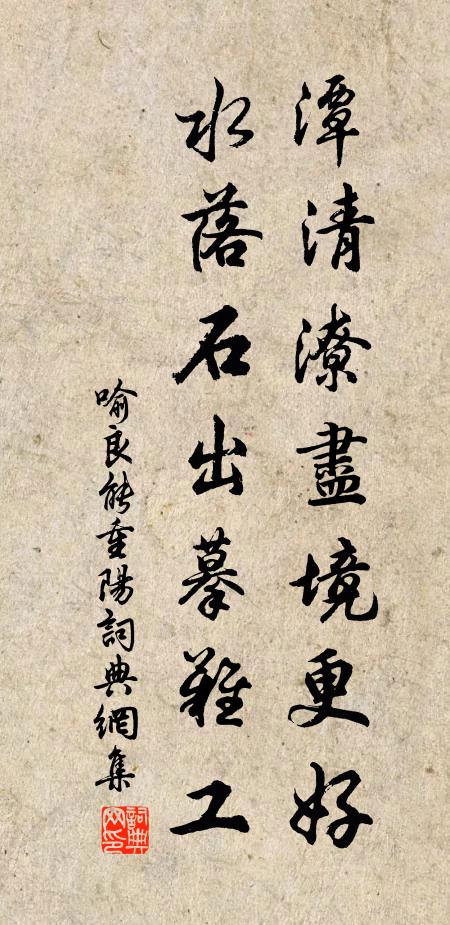 潭清潦盡境更好
水落石出摹難工
喻良能重陽詞典網集
詞典網印